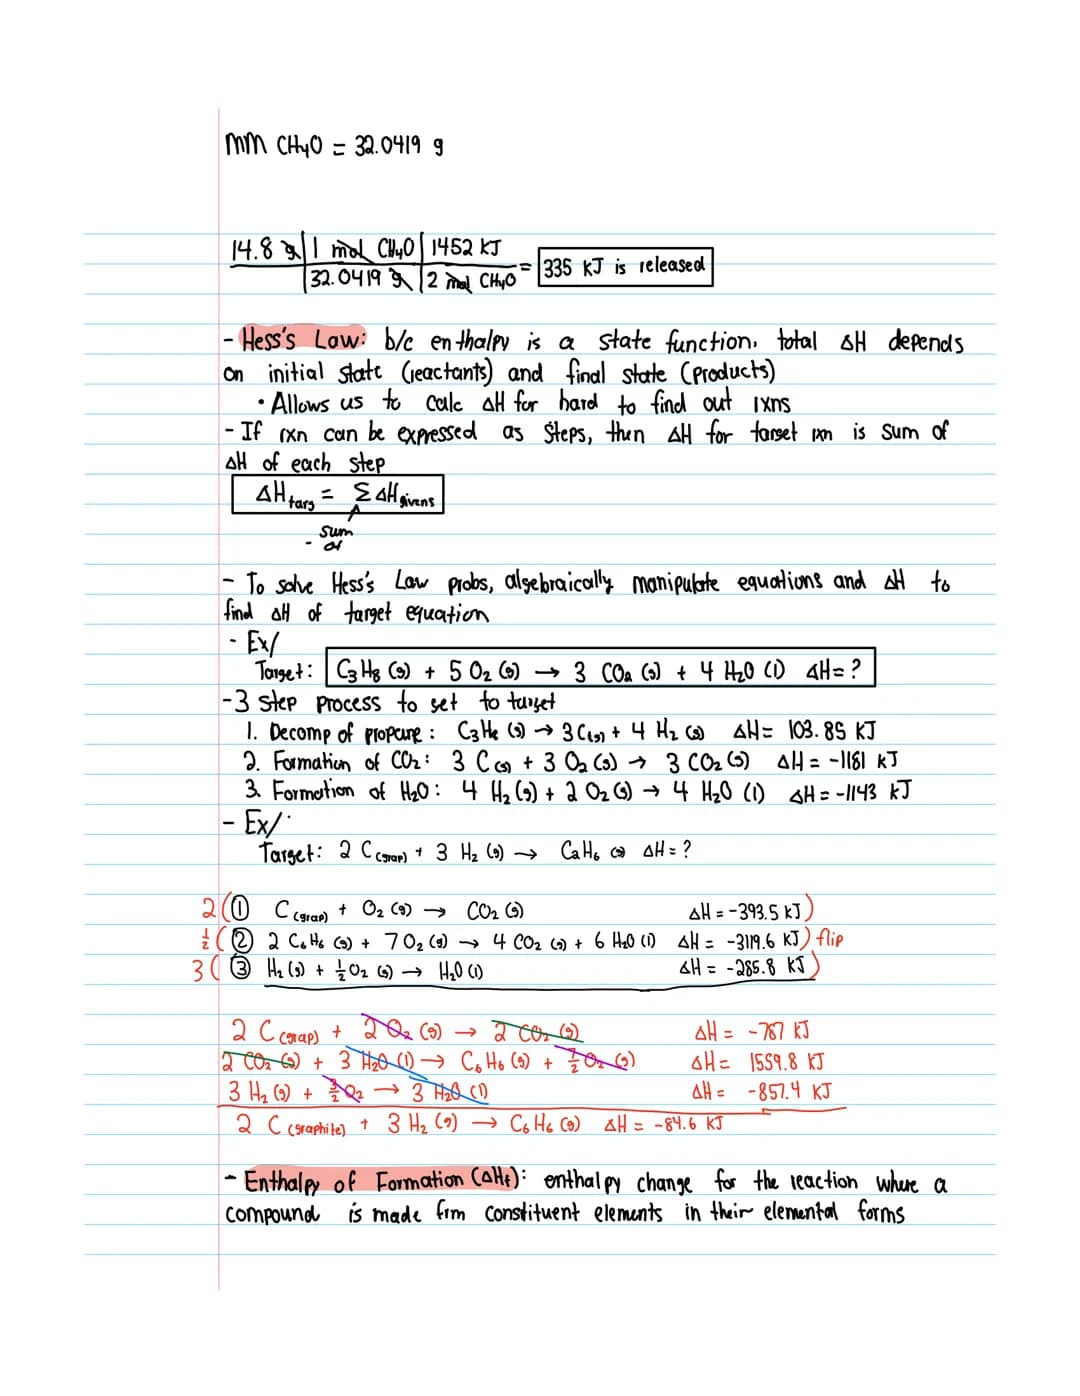 MM CH4O = 32.0419 g
14.8 g | 1 mol CH4O | 1452 KJ
32.0419 g | 2 mol CH4O = 335 KJ is released
- Hess's Law: b/c enthalpy is a state function, total ΔH depends
on initial state (reactants) and final state (products)
• Allows us to calc ΔH for hard to find out rxns
- If rxn can be expressed as steps, then ΔH for target rxn is sum of
ΔH of each step
ΔH targ = Σ ΔH givens
sum
- of
- To solve Hess's Law probs, algebraically manipulate equations and ΔH to
find ΔH of target equation
- Ex/
Target: C3H8 (g) + 5 O2 (g) → 3 CO2 (g) + 4 H2O (l) ΔH = ?
- 3 step process to get to target
1. Decomp of propane: C3H8 (g) → 3 C(s) + 4 H2 (g) ΔH = 103.85 KJ
2. Formation of CO2: 3 C (s) + 3 O2 (g) → 3 CO2 (g) ΔH = -1181 KJ
3. Formation of H2O: 4 H2 (g) + 2 O2 (g) → 4 H2O (l) ΔH = -1143 KJ
- Ex/
Target: 2 C (grap) + 3 H2 (g) → C2H6 (g) ΔH = ?
2( ① C (grap) + O2 (g) → CO2 (g) ΔH = -393.5 KJ )
½( ② 2 C6H6 (g) + 7 O2 (g) → 4 CO2 (g) + 6 H2O (l) ΔH = -3119.6 KJ ) flip
3( ③ H2 (g) + ½ O2 (g) → H2O (l) ΔH = -285.8 KJ )
2 C (grap) + 2 O2 (g) → 2 CO2 (g) ΔH = -787 KJ
2 CO2 (g) + 3 H2O (l) → C6H6 (g) + 7/2 O2 (g) ΔH = 1559.8 KJ
3 H2 (g) + 3/2 O2 → 3 H2O (l) ΔH = -857.4 KJ
2 C (graphite) + 3 H2 (g) → C6H6 (g) ΔH = -84.6 KJ
- Enthalpy of Formation (ΔHf): enthalpy change for the reaction where a
compound is made frm constituent elements in their elemental forms